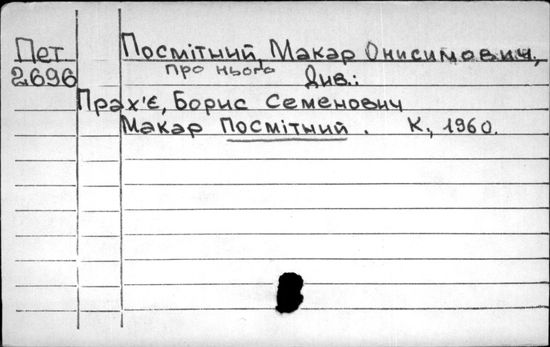 Пет Посмітний, Макар Онисимович,
2696 про нього Див.:
Прах'є, Борис Семенович
Макар Посмітний. К., 1960.